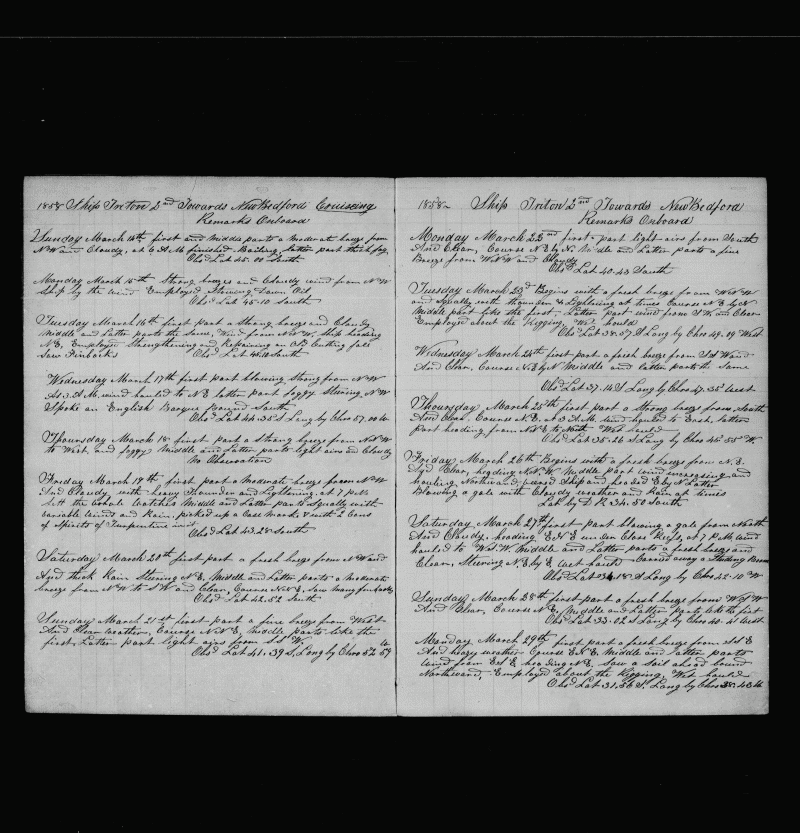 1858 Ship Triton 2nd Towards New Bedford Cruiseing
Remarks Onboard
Sunday March 14th first and midda parts a moderate breeze from
NW and Cloudy, at 6 A.M. finished Boiling, latter part thick fog.
Obsd Lat 45.00 South
Monday March 15th Strong breezes and Cloudy wind from NW
Ship by the wind Employed Stowing Down Oil
Obsd Lat 45.10 South
Tuesday March 16th first part a Strong breeze and Cloudy
Middle and Latter parts the same, Wind from NNW, Ship heading
NE, Employed Strengthening and Repairing an Old Cutting fall
Saw Finbacks Obsd Lat South
Wednesday March 17th first part blowing Strong from NW
At 3 A.M. wind hauled to NE latter part foggy Steering NW
Spoke an English Barque bound South
Obsd Lat 44.35 S Long by Chro 57.00 W
Thoursday March 18th first part a Strong breeze from NNW
to West, and foggy, Middle and Latter parts light airs and Cloudy
No Observation
Friday March 19th first part a Moderate breeze from NW
And Cloudy with heavy Thounder and Lightening, at 7 P.M.
Sett the whole Watches Middle and Latter parts Squally with
variable winds and Rain, picked up a Case Marked with 2 Cans
of Spirits of Turpentine in it
Obsd Lat 43.28 South
Saturday March 20th first part a fresh breeze from NW and
And thick Rain Steering NE, Middle and Latter parts a moderate
breeze from NW to SW and Clear, Course NNE, Saw many finbacks
Obsd Lat 42.52 South
Sunday March 21st first part a fine breeze from West
And Clear weather, Course NNE, Middle parts like the
first, Latter part light airs from SSW.
Obsd Lat 41.39 S, Long by Chro 52.59 W
1858 Ship Triton 2nd Towards New Bedford
Remarks Onboard
Monday March 22nd first part light airs from South
And Clear, Course NE by N, Middle and Latter parts a fine
Breeze from WNW and Cloudy
Obsd Lat 40.43 South
Tuesday March 23d Begins with a fresh breeze from West
and Squally with thounder & Lightning at times Course NE by N
Middle part like the first, Latter part wind from SW and Clear
Employed about the Rigging, Wet hould
Obsd Lat 38.57 S Long by Chro 49.09 West
Wednesday March 24th first part a fresh breeze from SSW and
And Clear, Course NE by N Middle and latter parts the same
Obsd Lat 37.14 S Long by Chro 47.35 West
Thoursday March 25th first part a Strong breeze from South
And Clear, Course NE, at 3 A.M. wind hauled to East, latter
part heading from NNE to North Wet hauld
Obsd Lat 35.26 S Long by Chro 46.55 W.
Friday March 26th Begins with a fresh breeze from N.E.
And Clear, heading NNW. Middle part wind increasing and
hauling Northward, wored Ship and headed E by N Latter
Blowing a gale with Cloudy weather and Rain at times
Lat by D R 34.50 South
Saturday March 27th first part blowing a gale from North
And Cloudy, heading ENE under Close Reefs, at 7 P.M. wind
hauled to WSW. Middle and Latter parts a fresh breeze and
Clear, Steering NE by E Wet hauld - Carried away a Studding Boom
Obsd Lat 34.18 S Long by Chro 42.10 W
Sunday March 28th first part a fresh breeze from WSW
And Clear, Course NE, Middle and Latter Parts like the first
Obsd Lat 33.02 S Long by Chro 40.41 West
Monday March 29th first part a fresh breeze from SSE
And hazy weather Course ENE Middle and latter parts
wind from ESE heading NE, saw a Sail ahead bound
Northward, Employed about the Rigging, Wet hauld
Obsd Lat 31.56 S, Long by Chro 38.43 W